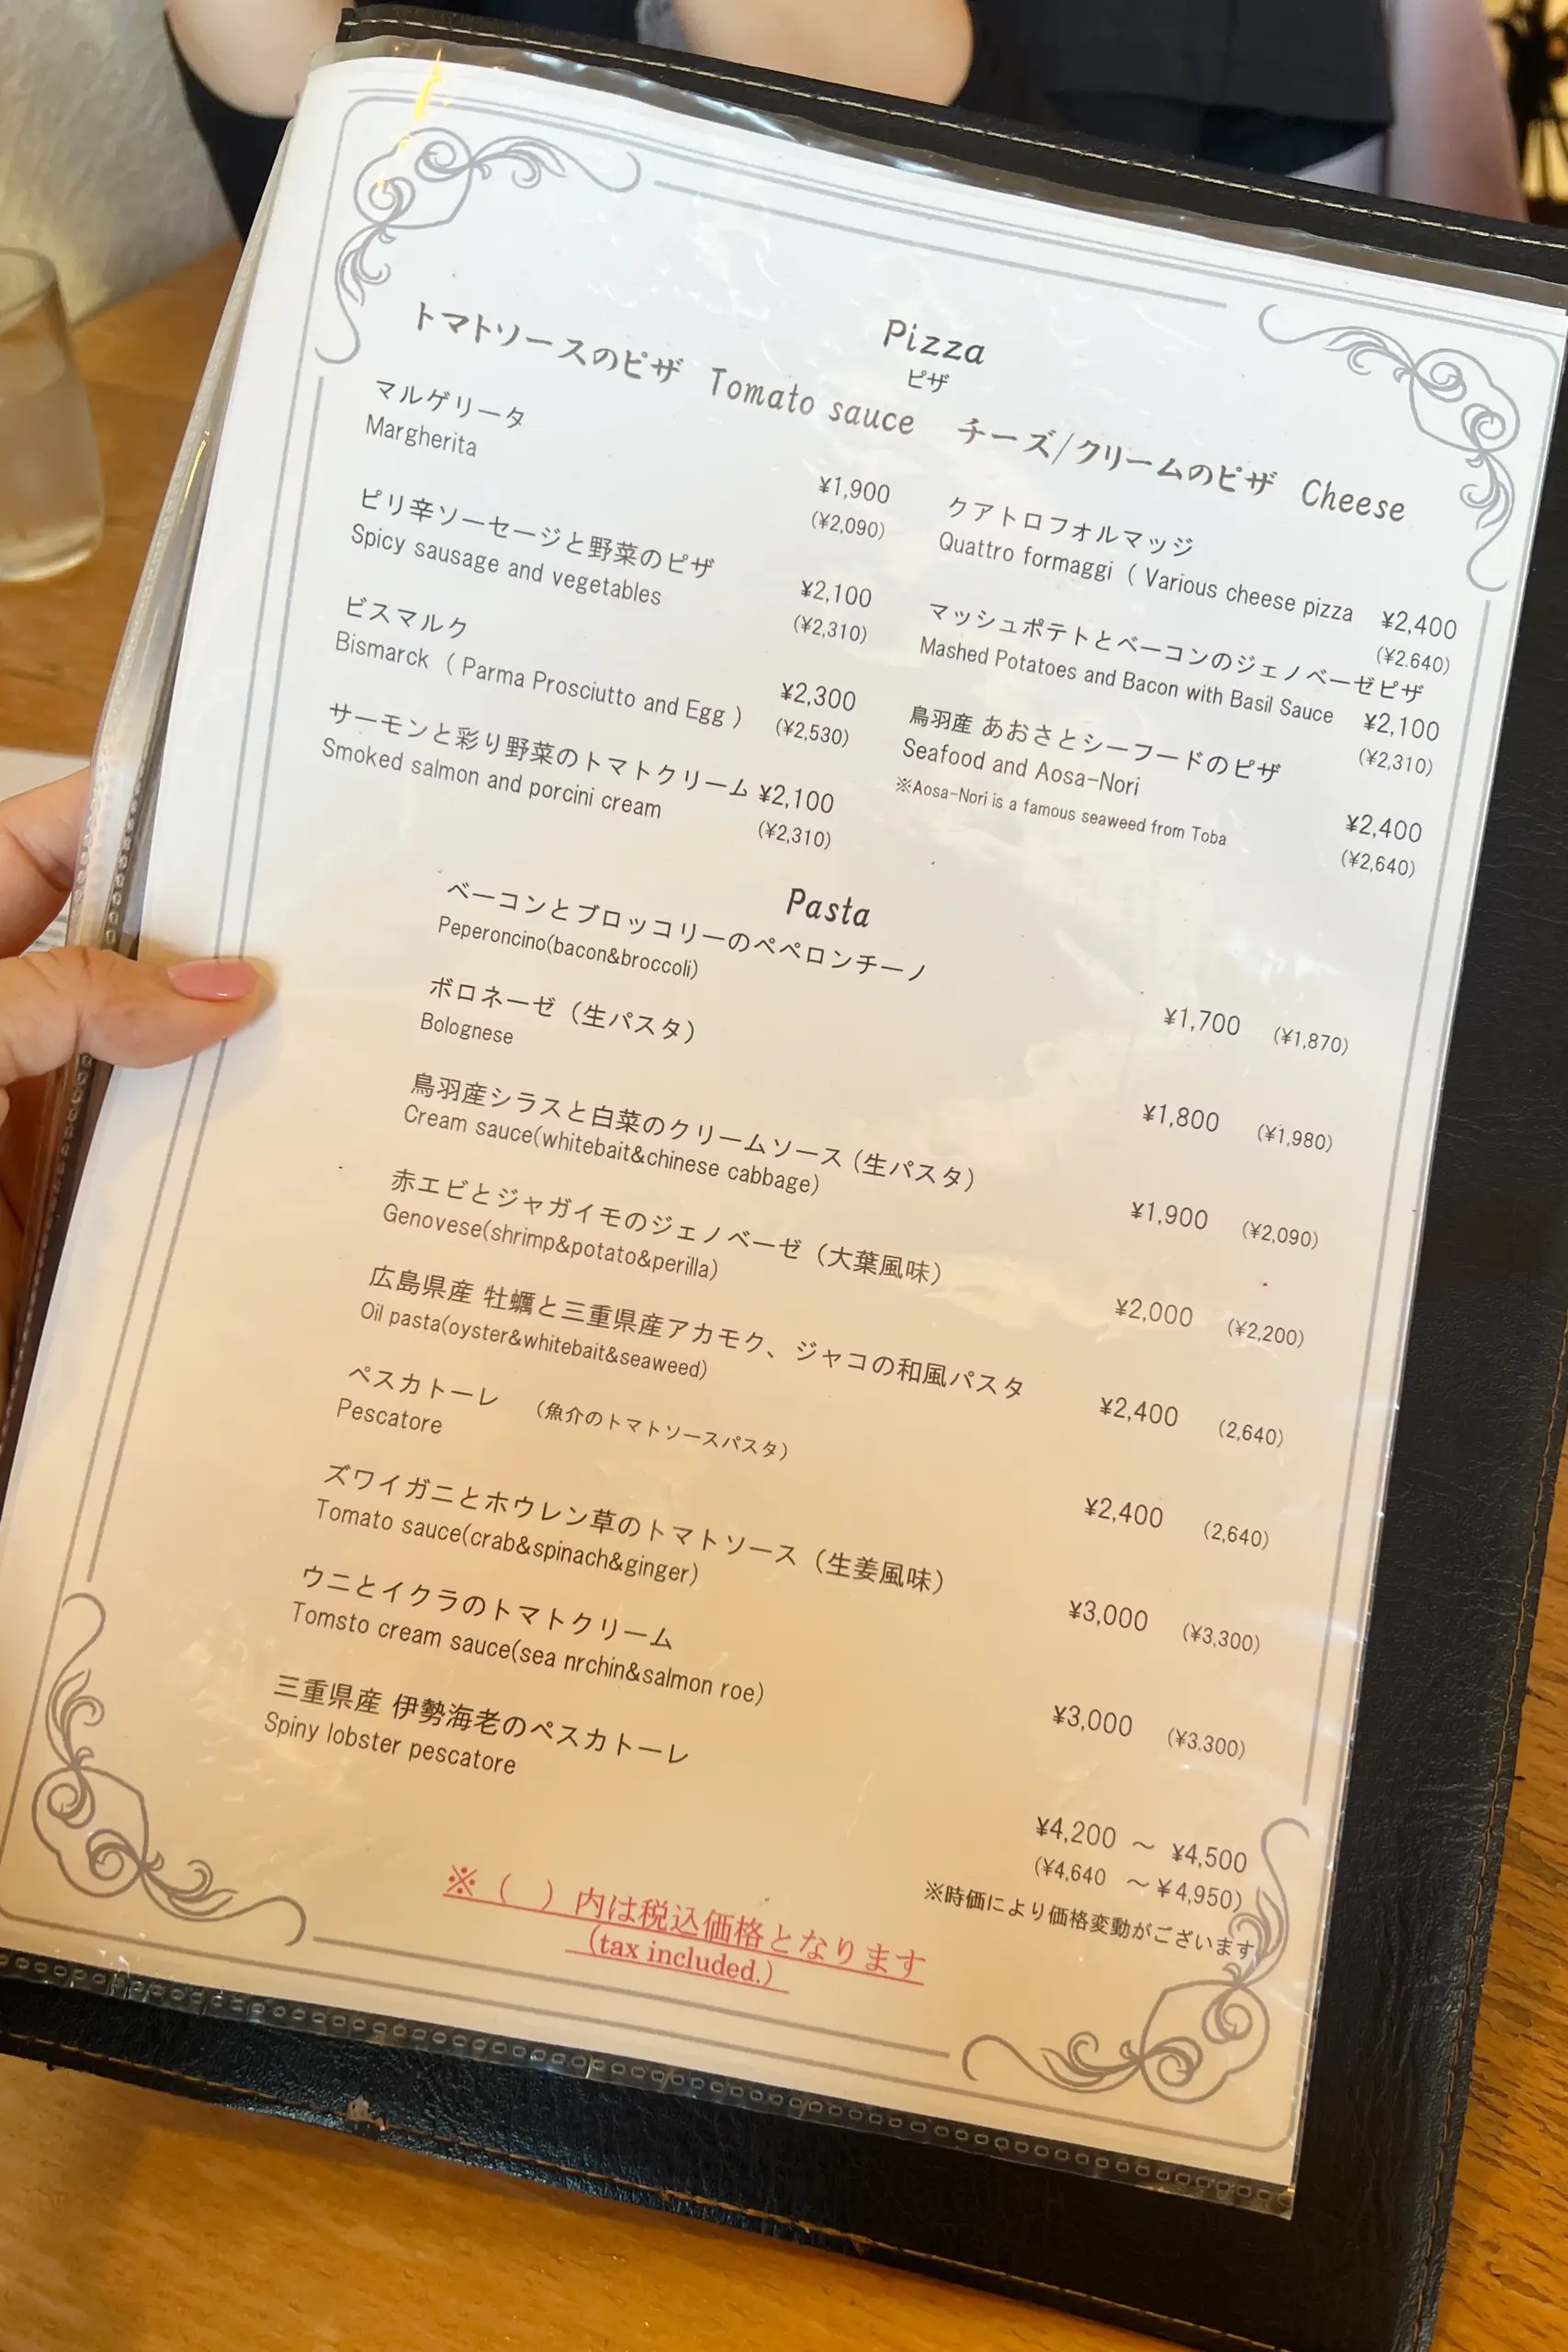 Pizza
ピザ
トマトソースのピザ Tomato sauce
マルゲリータ
Margherita
¥1,900
(¥2,090)
ピリ辛ソーセージと野菜のピザ
Spicy sausage and vegetables
¥2,100
(¥2,310)
ビスマルク
Bismarck ( Parma Prosciutto and Egg )
¥2,300
(¥2,530)
サーモンと彩り野菜のトマトクリーム ¥2,100
Smoked salmon and porcini cream
(¥2,310)
チーズ/クリームのピザ Cheese
クアトロフォルマッジ
Quattro formaggi ( Various cheese pizza ¥2,400
(¥2.640)
マッシュポテトとベーコンのジェノベーゼピザ
Mashed Potatoes and Bacon with Basil Sauce ¥2,100
(¥2,310)
鳥羽産 あおさとシーフードのピザ
Seafood and Aosa-Nori
※Aosa-Nori is a famous seaweed from Toba
¥2,400
(¥2,640)
Pasta
ベーコンとブロッコリーのペペロンチーノ
Peperoncino(bacon&broccoli)
¥1,700 (¥1,870)
ボロネーゼ（生パスタ）
Bolognese
¥1,800 (¥1,980)
鳥羽産シラスと白菜のクリームソース（生パスタ）
Cream sauce(whitebait&chinese cabbage)
¥1,900 (¥2,090)
赤エビとジャガイモのジェノベーゼ（大葉風味）
Genovese(shrimp&potato&perilla)
¥2,000 (¥2,200)
広島県産 牡蠣と三重県産アカモク、ジャコの和風パスタ
Oil pasta(oyster&whitebait&seaweed)
¥2,400 (2,640)
ペスカトーレ （魚介のトマトソースパスタ）
Pescatore
¥2,400 (2,640)
ズワイガニとホウレン草のトマトソース（生姜風味）
Tomato sauce(crab&spinach&ginger)
¥3,000 (¥3,300)
ウニとイクラのトマトクリーム
Tomsto cream sauce(sea nrchin&salmon roe)
¥3,000 (¥3.300)
三重県産 伊勢海老のペスカトーレ
Spiny lobster pescatore
¥4,200 ～ ¥4,500
(¥4,640 ～¥4,950)
※時価により価格変動がございます
※（ ）内は税込価格となります
（tax included.）